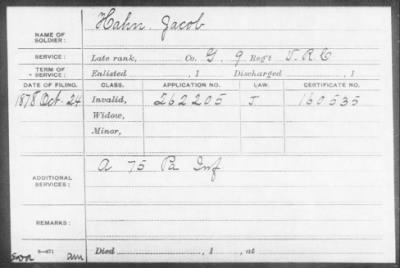 NAME OF SOLDIER: Hahn, Jacob
SERVICE: Late rank, Co. G, 9 Reg't V.R.C
TERM OF SERVICE: Enlisted , 1 Discharged , 1
DATE OF FILING. CLASS. APPLICATION NO. LAW. CERTIFICATE NO.
1878 Oct. 24 Invalid, 262205 J 160535
Widow,
Minor,
ADDITIONAL SERVICES: A 75 Pa Inf
REMARKS:
Died , 1 , at